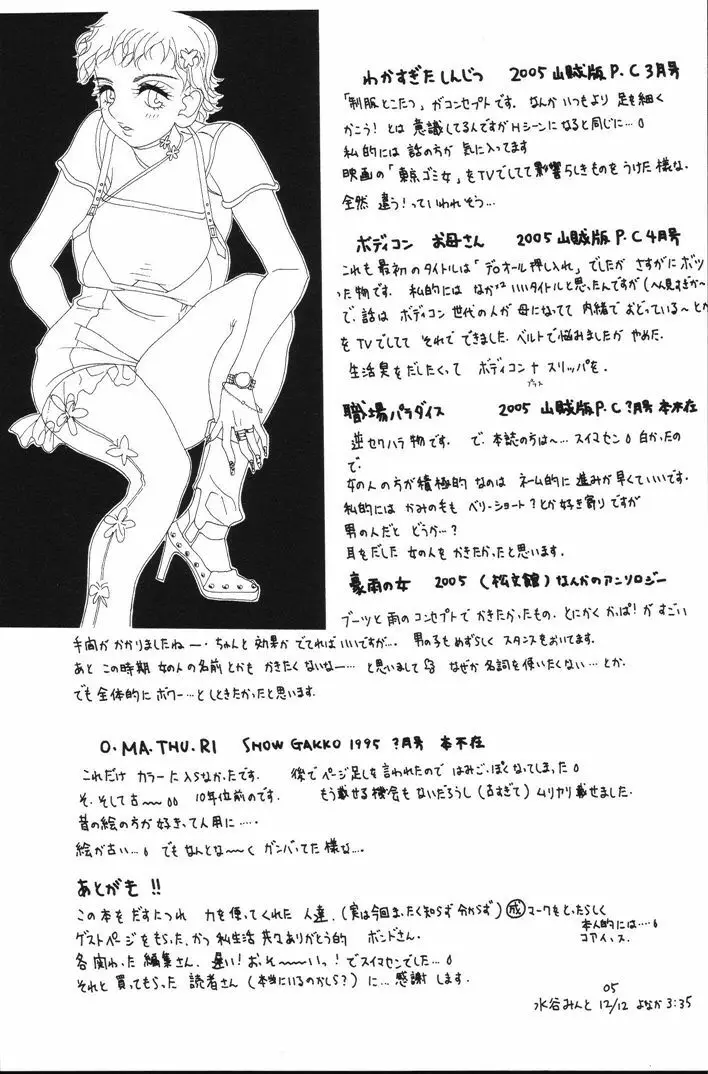 わかすぎたしんじつ 2005 山賊版 P.C 3月号
「制服とこたつ」がコンセプトです。なんかいつもより足を細く
かこう!とは意識してるんですがHシーンになると同じに…。
私的には話の方が気に入ってます
映画の「東京ゴミ女」をTVでしてて影響らしきものをうけた様な。
全然違う!っていわれそう…
ボディコンお母さん 2005 山賊版 P.C 4月号
これも最初のタイトルは「デロオール押し入れ」でしたがさすがにボツ
った物です。私的にはなかなかいいタイトルと思ったんですが(へん見すぎか〜
で、話はボディコン世代の人が母になってて内緒でおどっている〜とか
をTVでしててそれでできました。ベルトで悩みましたがやめた。
生活臭をだしたくってボディコン+スリッパを。
プラス
職場パラダイス 2005 山賊版 P.C ?月号 本不在
逆セクハラ物です。で、本誌の方は〜…スイマセン。白かったの
で。
女の人の方が積極的なのはネーム的に進みが早くていいです。
私的にはかみの毛もベリーショート?とか好き寄りですが
男の人だとどうか…?
耳をだした女の人をかきたかったと思います。
豪雨の女 2005 (松文館)なんかのアンソロジー
ブーツと雨のコンセプトでかきたかったもの。とにかくかっぱ!がすごい
手間がかかりましたねー…ちゃんと効果がでてればいいですが…。男の子もめずらしくスタンスをおいてます。
あとこの時期女の人の名前とかもかきたくないなー…と思いまして なぜか名詞を使いたくない…とか。
でも全体的にボワー…としときたかったと思います。
O.MA.THU.RI SHOW GAKKO 1995 ?月号 本不在
これだけカラーに入らなかったです。後でページ足しを言われたのではみごっぽくなってしまった。
そ、そして古〜〜。。10年位前のです。もう載せる機会もないだろうし(古すぎて)ムリヤリ載せました。
昔の絵の方が好きって人用に……
絵が古い…。でもなんとな〜〜くガンバってた様な…。
あとがき!!
この本をだすにつれ力を使ってくれた人達、(実は今回まったく知らず分からず)成マークをとったらしく
本人的には…。
コアイッス。
ゲストページをもらった、かつ私生活共々ありがとう的ボンドさん。
各関わった編集さん、遅い!お〜そ〜〜〜いっ!でスイマセンでした…。
それと買ってもらった読者さん(本当にいるのかしら?)に…感謝します。
05
水谷みんと 12/12 よなか3:35